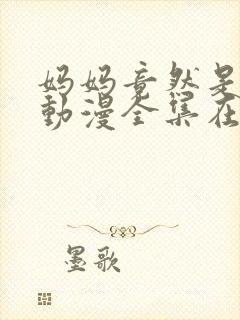 妈妈竟然是
動漫全集在
墨歌